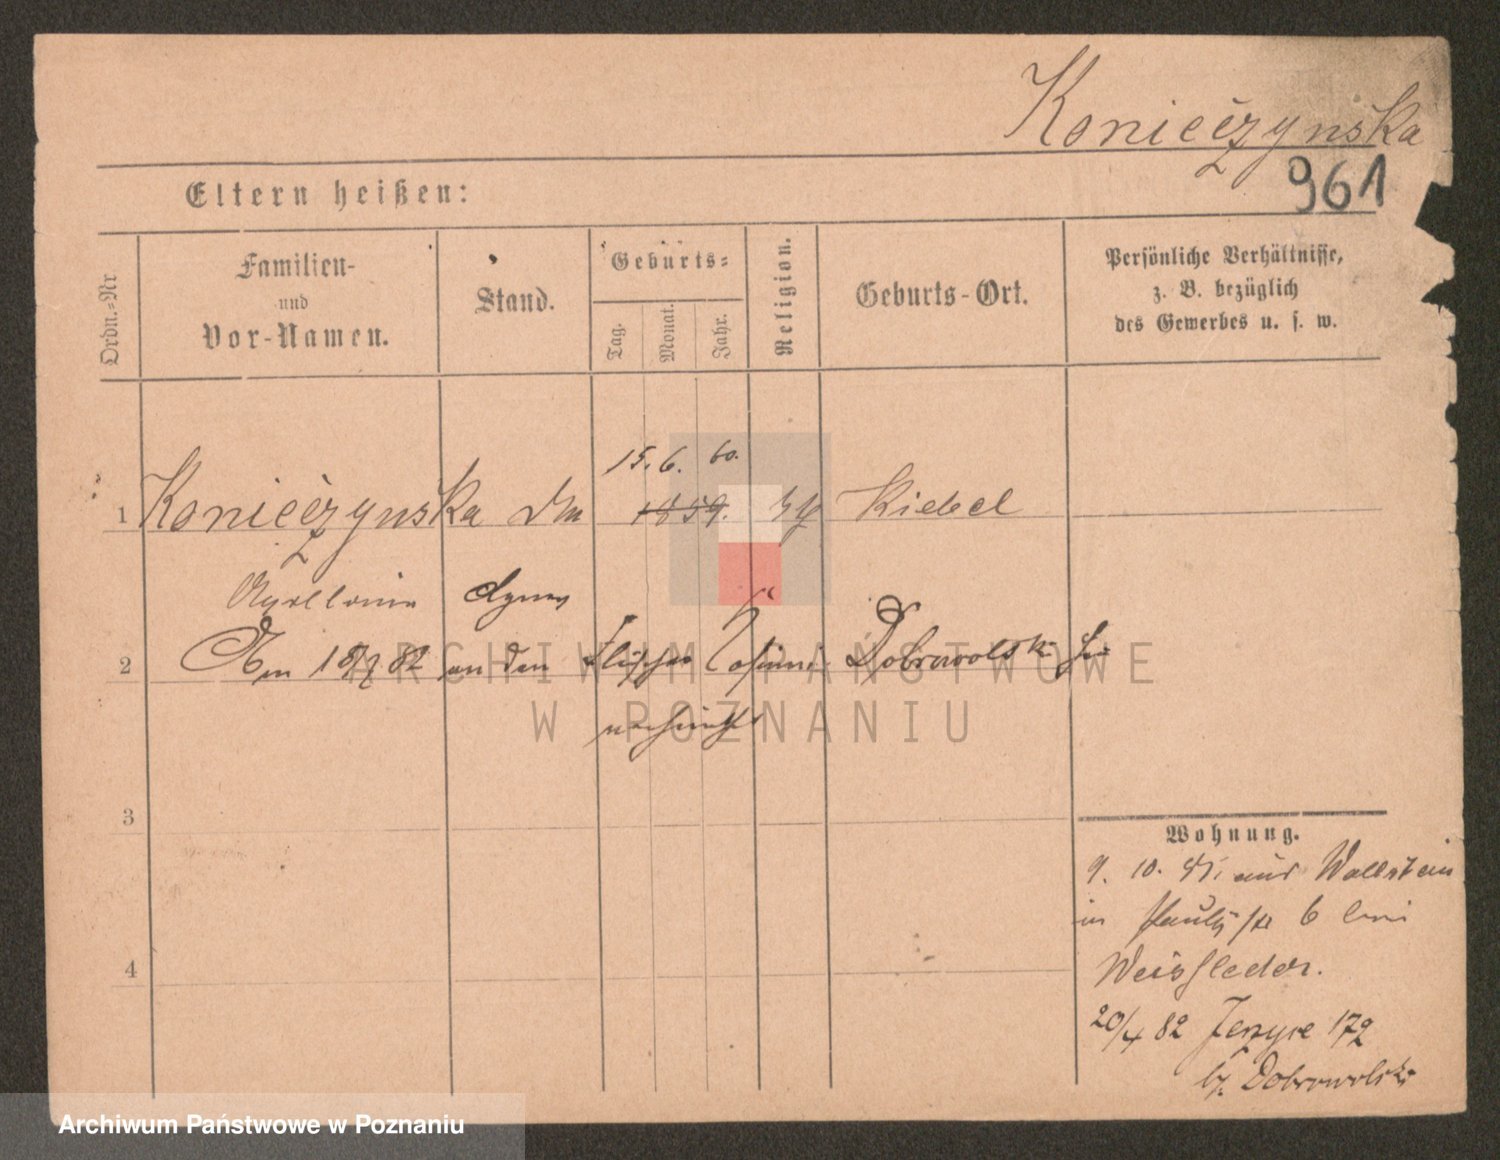 Koniećzynska
961
Eltern heißen:
Ordn.-Nr
Familien-
und
Vor-Namen.
Stand.
Geburts-
Tag.
Monat.
Jahr.
Religion.
Geburts-Ort.
Persönliche Verhältnisse,
z. B. bezüglich
des Gewerbes u. s. w.
15. 6. 60.
1 Koniećzynska 1859. Kiebel
Apollonia Agnes
2 Am 82 an den Dobrowolski
ARCHIWUM PAŃSTWOWE
W POZNANIU
3
4
Wohnung.
9. 10. 81. aus Wollstein
in 6 bei
Weissfleder.
20/4 82 Jerzyce 172
b. Dobrowolski
Archiwum Państwowe w Poznaniu